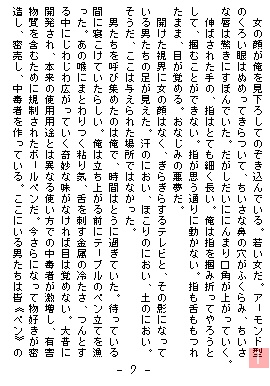 女の顔が俺を見下ろしてのぞき込んでいる。若い女だ。アーモンド型
のくろい眼はぬめってきらついて、ちいさな鼻の穴がふくらみ、ちいさ
な唇は驚きにすぼんでいた。だがしだいににんまり口角が上がっていく。
　伸ばされた手の、指はとても細く長い。俺は指を掴み折ってやろうと
して、掴むことができない。指が思う通りに動かない。指も舌ももつれ
たまま、目が覚める。おなじみの悪夢だ。
　開けた視界に女の顔はなく、ぎらぎらするテレビと、その影になって
いる男たちの足が見えた。汗のにおい、ほこりのにおい、土のにおい。
そうだ、ここは与えられた場所ではなかった。
　男たちを呼び集めたのは俺で、時間はとうに過ぎていた。待っている
間に寝こけていたらしい。俺は立ち上がる前にテーブルのペン立てを漁
った。あの喉にまとわりつく粘り気、舌を刺す金属の冷たさ、つんとす
る中にじわじわ広がっていく奇妙な味がなければ目は覚めない。大昔に
開発され、本来の使用用途とは異なる使い方での中毒者が激増し、有害
物質を含むために規制されたボールペンだ。今さらになって物好きが密
造し、密売し、中毒者を作っている。ここにいる男たちは皆《ペン》の
- 9 -
↑